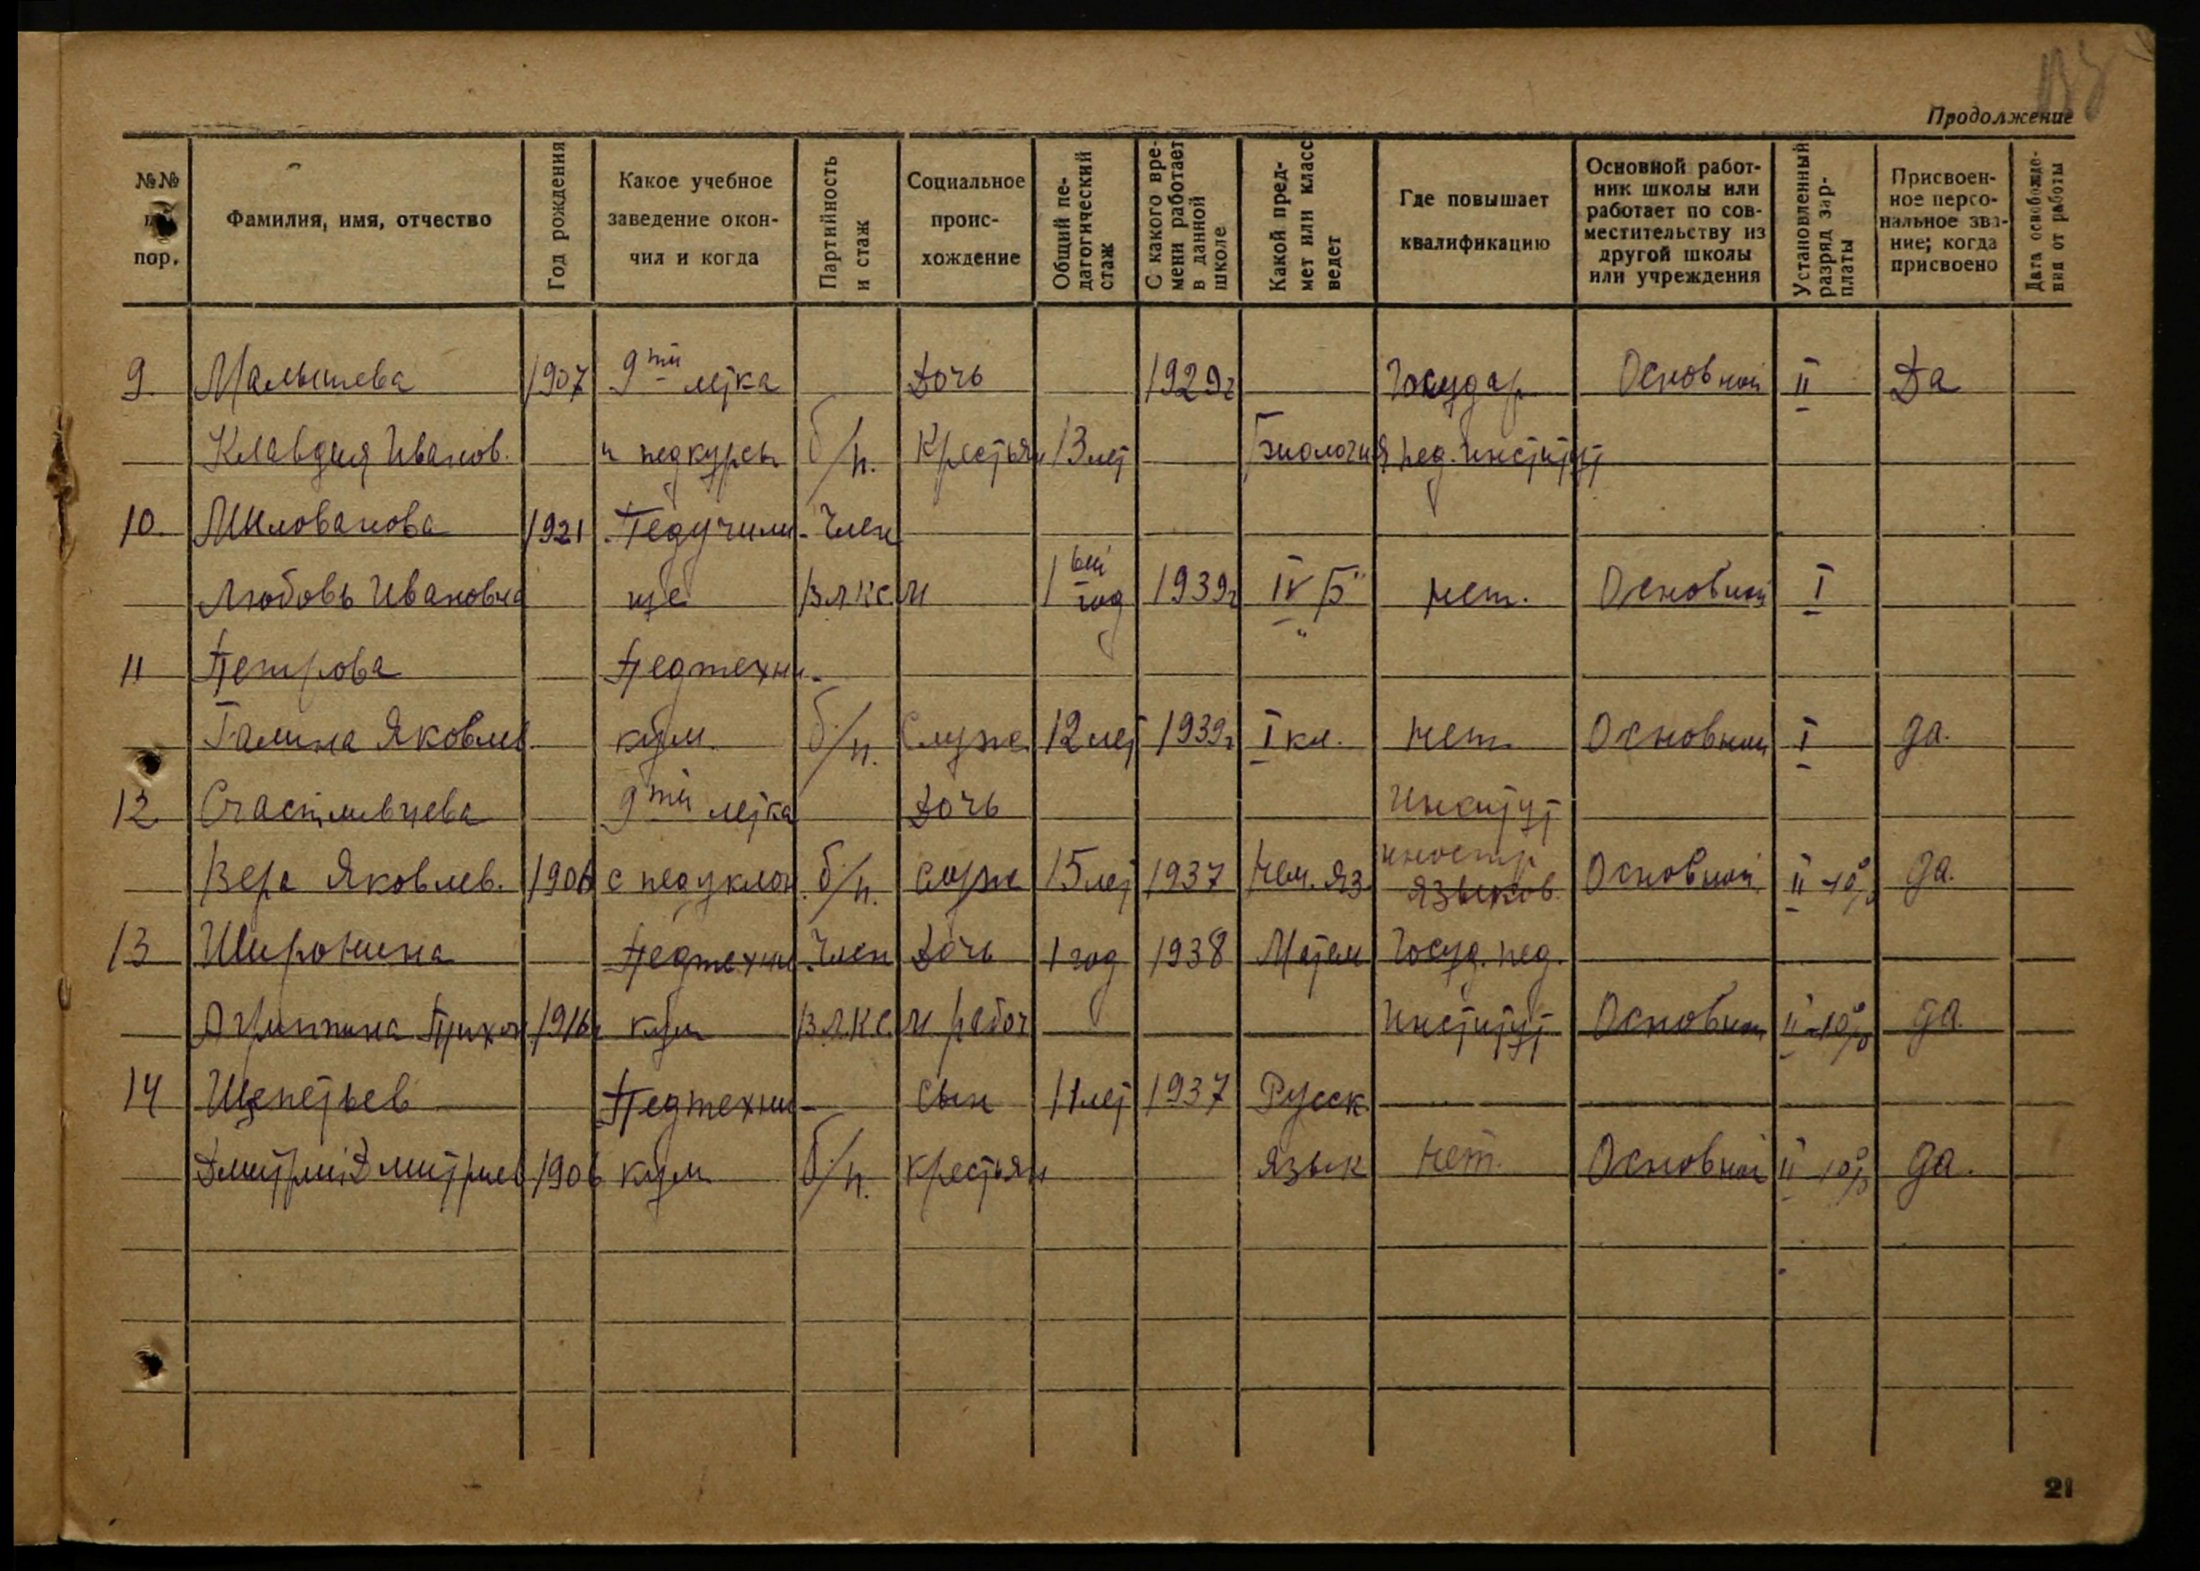 Продолжение
№№ по пор. Фамилия, имя, отчество Год рождения Какое учебное заведение окончил и когда Партийность и стаж Социальное происхождение Общий педагогический стаж С какого времени работает в данной школе Какой предмет или класс ведет Где повышает квалификацию Основной работник школы или работает по совместительству из другой школы или учреждения Установленный разряд зарплаты Присвоенное персональное звание; когда присвоено Дата освобождения от работы
9 Малышева 1907 9ти летка Дочь 1929г Государ Основной II Да
Клавдия Иванов. и педкурсы б/п. Крестьян 13 лет Биология пед. институт
10. Милованова 1921 Педучили- Член
Любовь Ивановна ще ВЛКСМ 1ый год 1939г IV "Б" нет. Основной I
11 Петрова Педтехни-
Галина Яковлев. кум. б/п. Служ 12 лет 1939г I кл. нет. Основной I да.
12 Счастливцева 9ти летка Дочь Институт
Вера Яковлев. 1906 с педуклон. б/п. служ 15 лет 1937 Нем. яз. иностр языков. Основной II -10% да.
13 Широнина Педтехни Член Дочь 1 год 1938 Матем Госуд. пед.
Агриппина Тихон 1916г кум ВЛКСМ рабоч Институт Основной II -10% да
14 Щепетьев Педтехни- Сын 11 лет 1937 Русск.
Дмитрий Дмитриев 1906 кум б/п. крестьян язык нет. Основной II -10% да.
21